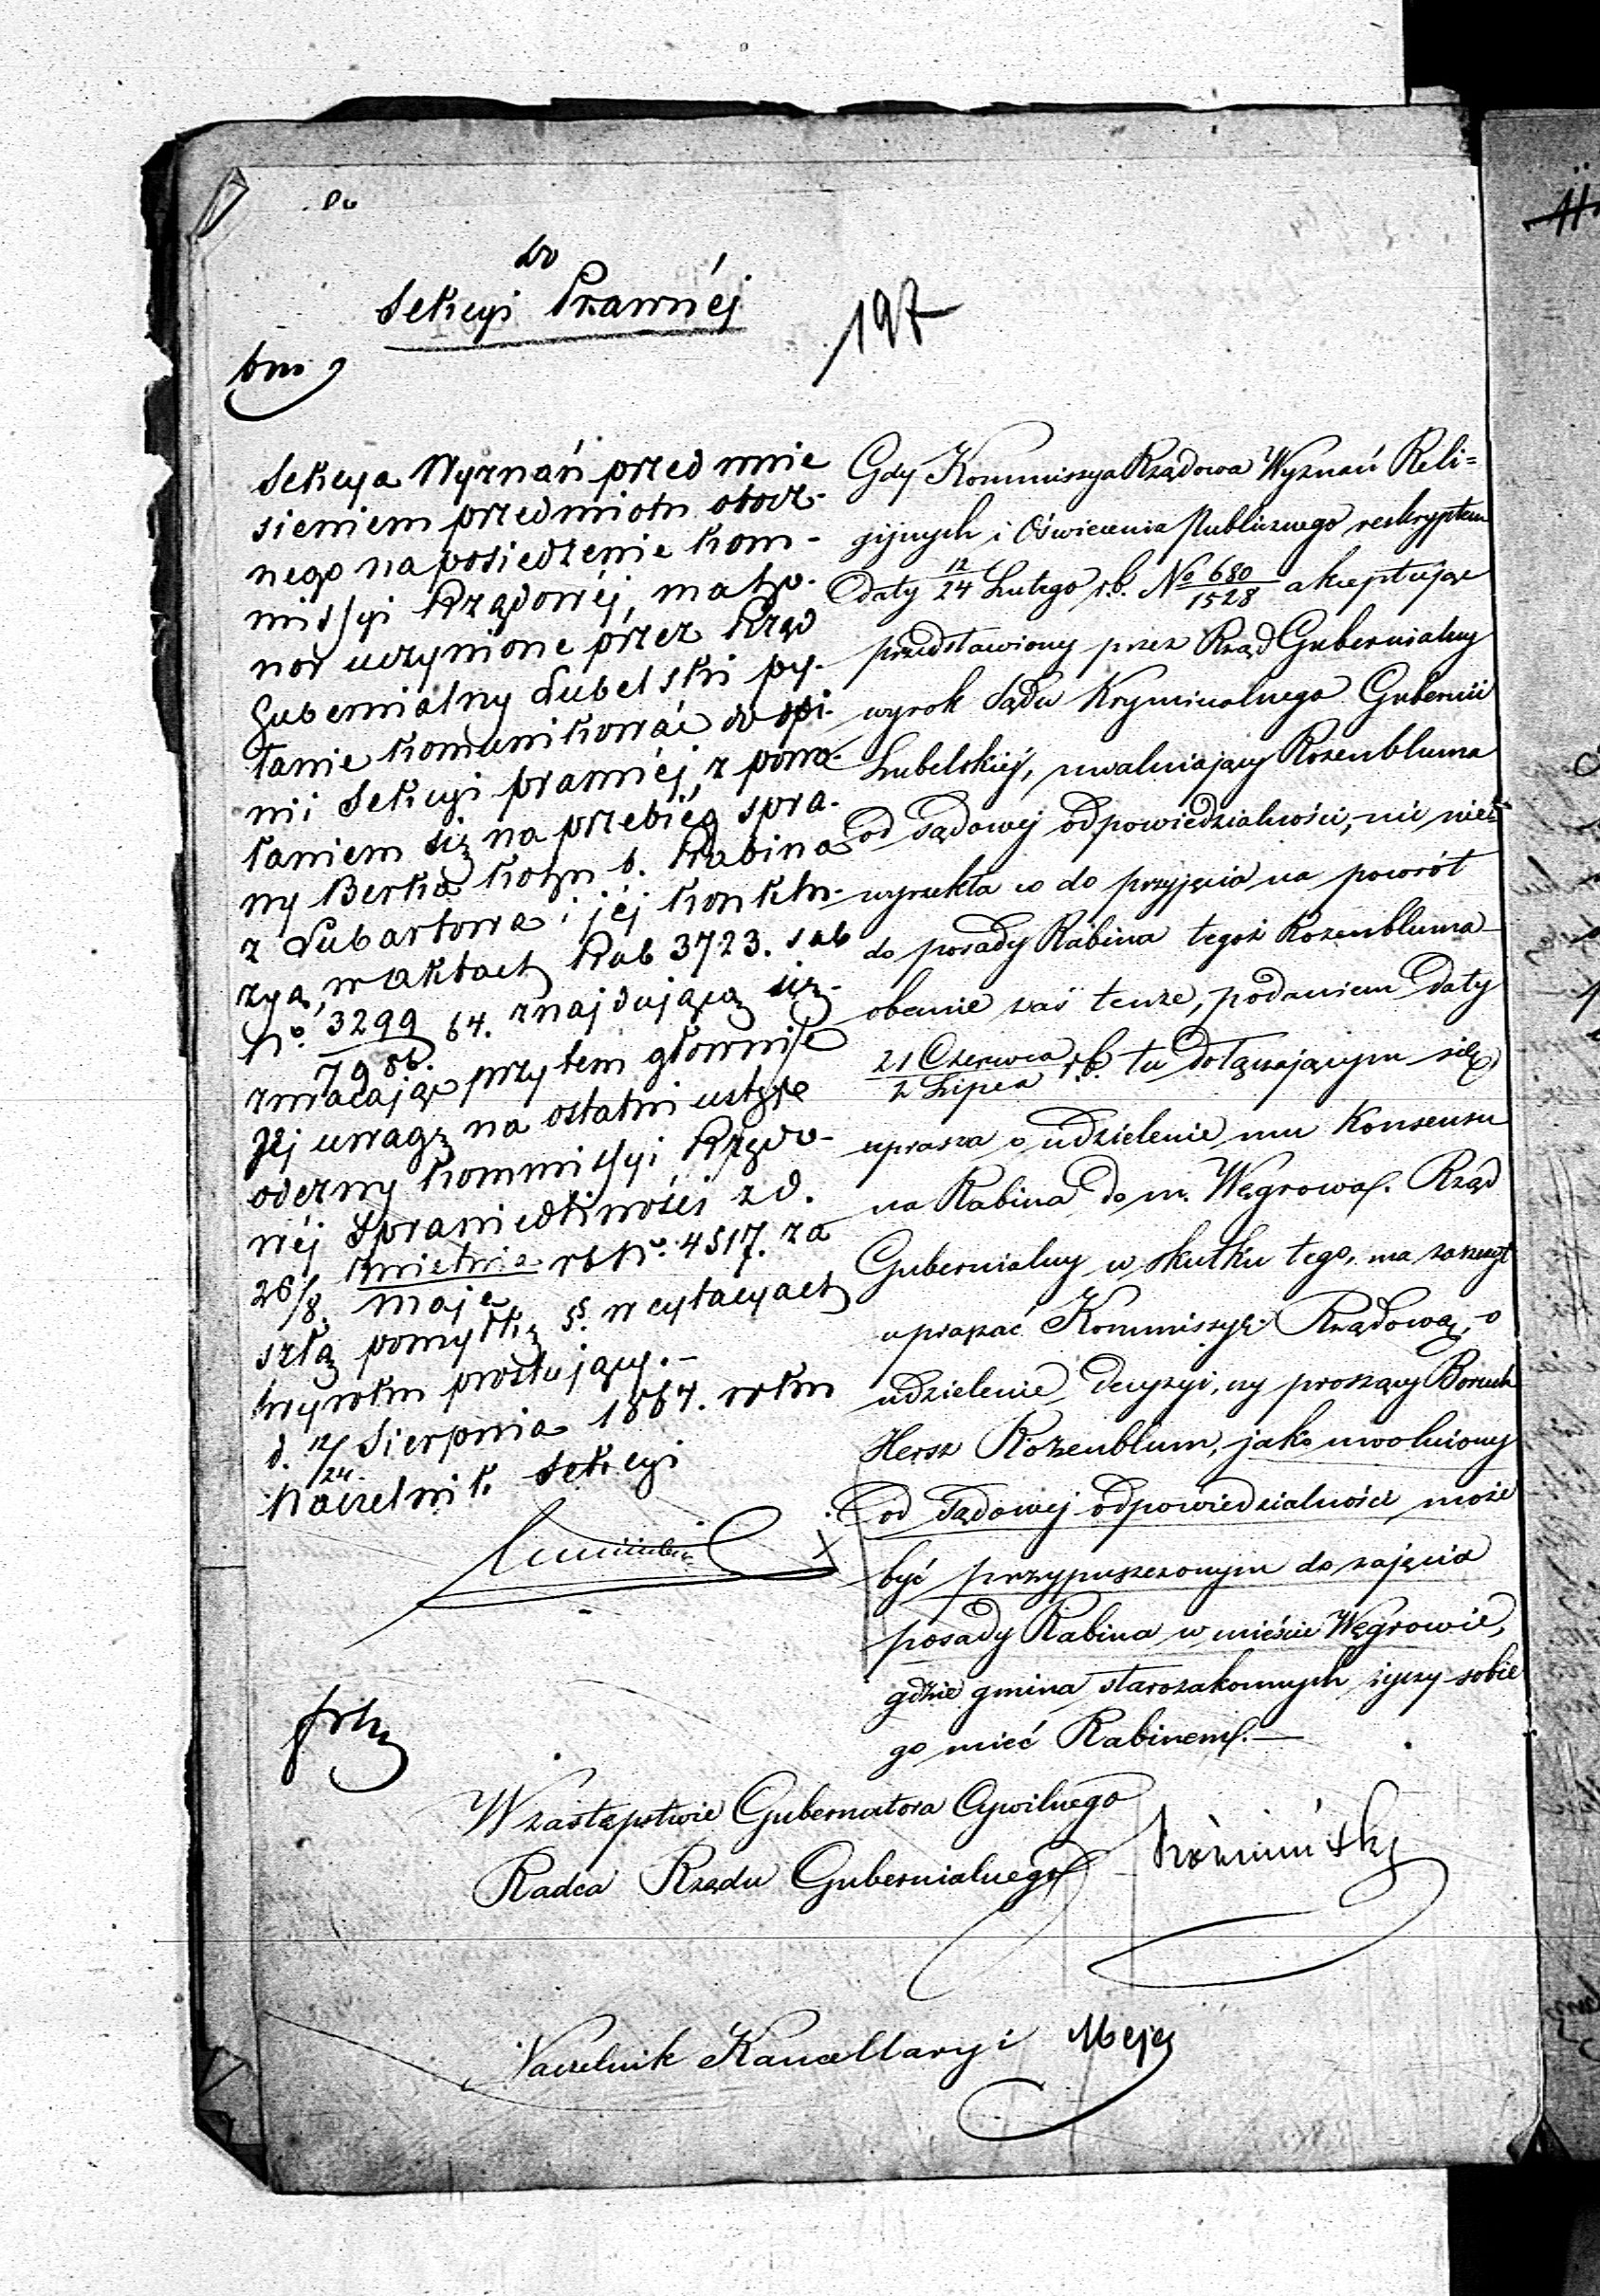 do
Sekcyi Prawnéj
197
Sekcya Wyznań przed wnie
sieniem przedmiotu obocz-
nego na posiedzenie Kom-
missyi Rządowéj, ma ho-
nor uczynione przez Rząd
Gubernialny Lubelski py-
tanie komunikować do opi-
nii Sekcyi prawnéj, z powo-
łaniem się na przebieg spra-
wy Berka Kohn b. Rabina
z Lubartowa i jéj konklu-
zyą, w aktach Rab 3723. sub
No. 3299/7986. 64. znajdującą się
zwracając przytem głównie
Jéj uwagę na ostatni ustęp
odezwy Kommissyi Rządo-
wéj Sprawiedliwości z d.
26/8. Kwietnia/Maja rb No. 4517. za
szłą pomyłkę §. w cytacyach
wyroku prostujący.—
d. 12/24. Sierpnia 1864. roku
Naczelnik Sekcyi
Gdy Kommissya Rządowa Wyznań Reli=
gijnych i Oświecenia Publicznego reskryptem
daty 12/24 Lutego r.b. No 680/1528 akceptując
przedstawiony przez Rząd Gubernialny
wyrok Sądu Kryminalnego Gubernii
Lubelskiéj, uwalniający Rozenbluma
od sądowéj odpowiedzialności, nic nie
wyrzekła co do przyjęcia na powrót
do posady Rabina tegoż Rozenbluma
obecnie zaś tenże, podaniem daty
21 Czerwca/2 Lipca r.b. tu dołączającym się,
uprasza o udzielenie mu Konsensu
na Rabina do m. Węgrowa. Rząd
Gubernialny w skutku tego, ma zaszczyt
upraszać Kommissyę Rządową, o
udzielenie decyzyi, czy proszący Boruch
Hersz Rozenblum, jako uwolniony
od sądowéj odpowiedzialności może
być przypuszczonym do zajęcia
posady Rabina w mieście Węgrowie,
gdzie gmina starozakonnych życzy sobie
go mieć Rabinem.—
W zastępstwie Gubernatora Cywilnego
Radca Rządu Gubernialnego
Naczelnik Kancellaryi